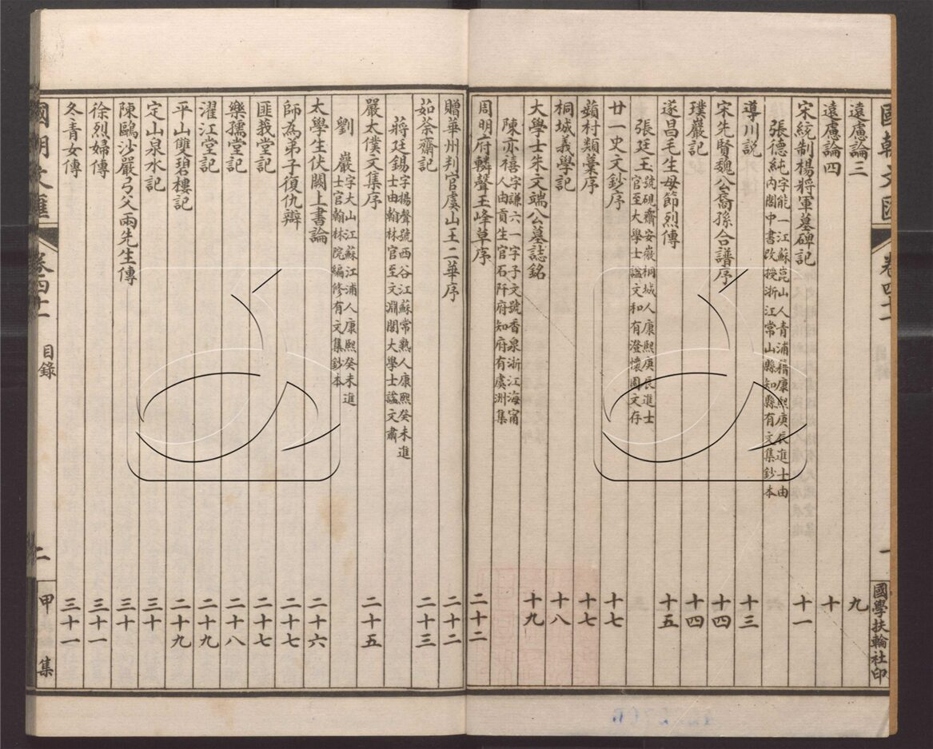 國朝文匯 卷四十一 一 國學扶輪社印
遠慮論三 九
遠慮論四 十
宋統制楊將軍墓碑記 十一
張德純 字能一江蘇崑山人青浦籍康熙庚辰進士由內閣中書改授浙江常山縣知縣有文集鈔本
導川說 十三
宋先賢魏公裔孫合譜序 十四
璞巖記 十四
遂昌毛生母節烈傳 十五
張廷玉 號硯齋安徽桐城人康熙庚辰進士官至大學士諡文和有澄懷園文存
廿一史文鈔序 十七
蘋村類藁序 十七
桐城義學記 十八
大學士朱文端公墓誌銘 十九
陳亦禧 字謙六一字子文號香泉浙江海甯人由貢生官石阡府知府有虞洲集
周明府轔聲玉峰草序 二十二
贈華州判官虞山王二華序 二十二
茹荼齋記 二十三
蔣廷錫 字揚聲號西谷江蘇常熟人康熙癸未進士由翰林官至文淵閣大學士諡文肅
嚴太僕文集序 二十五
劉巖 字大山江蘇江浦人康熙癸未進士官翰林院編修有文集鈔本
太學生伏闕上書論 二十六
師為弟子復仇辯 二十七
匪莪堂記 二十七
樂孺堂記 二十八
濯江堂記 二十九
平山雙碧樓記 二十九
定山泉水記 三十
陳鷗沙嚴弓父兩先生傳 三十
徐烈婦傳 三十一
冬青女傳 三十一
國朝文匯 卷四十一 目錄 二 甲集